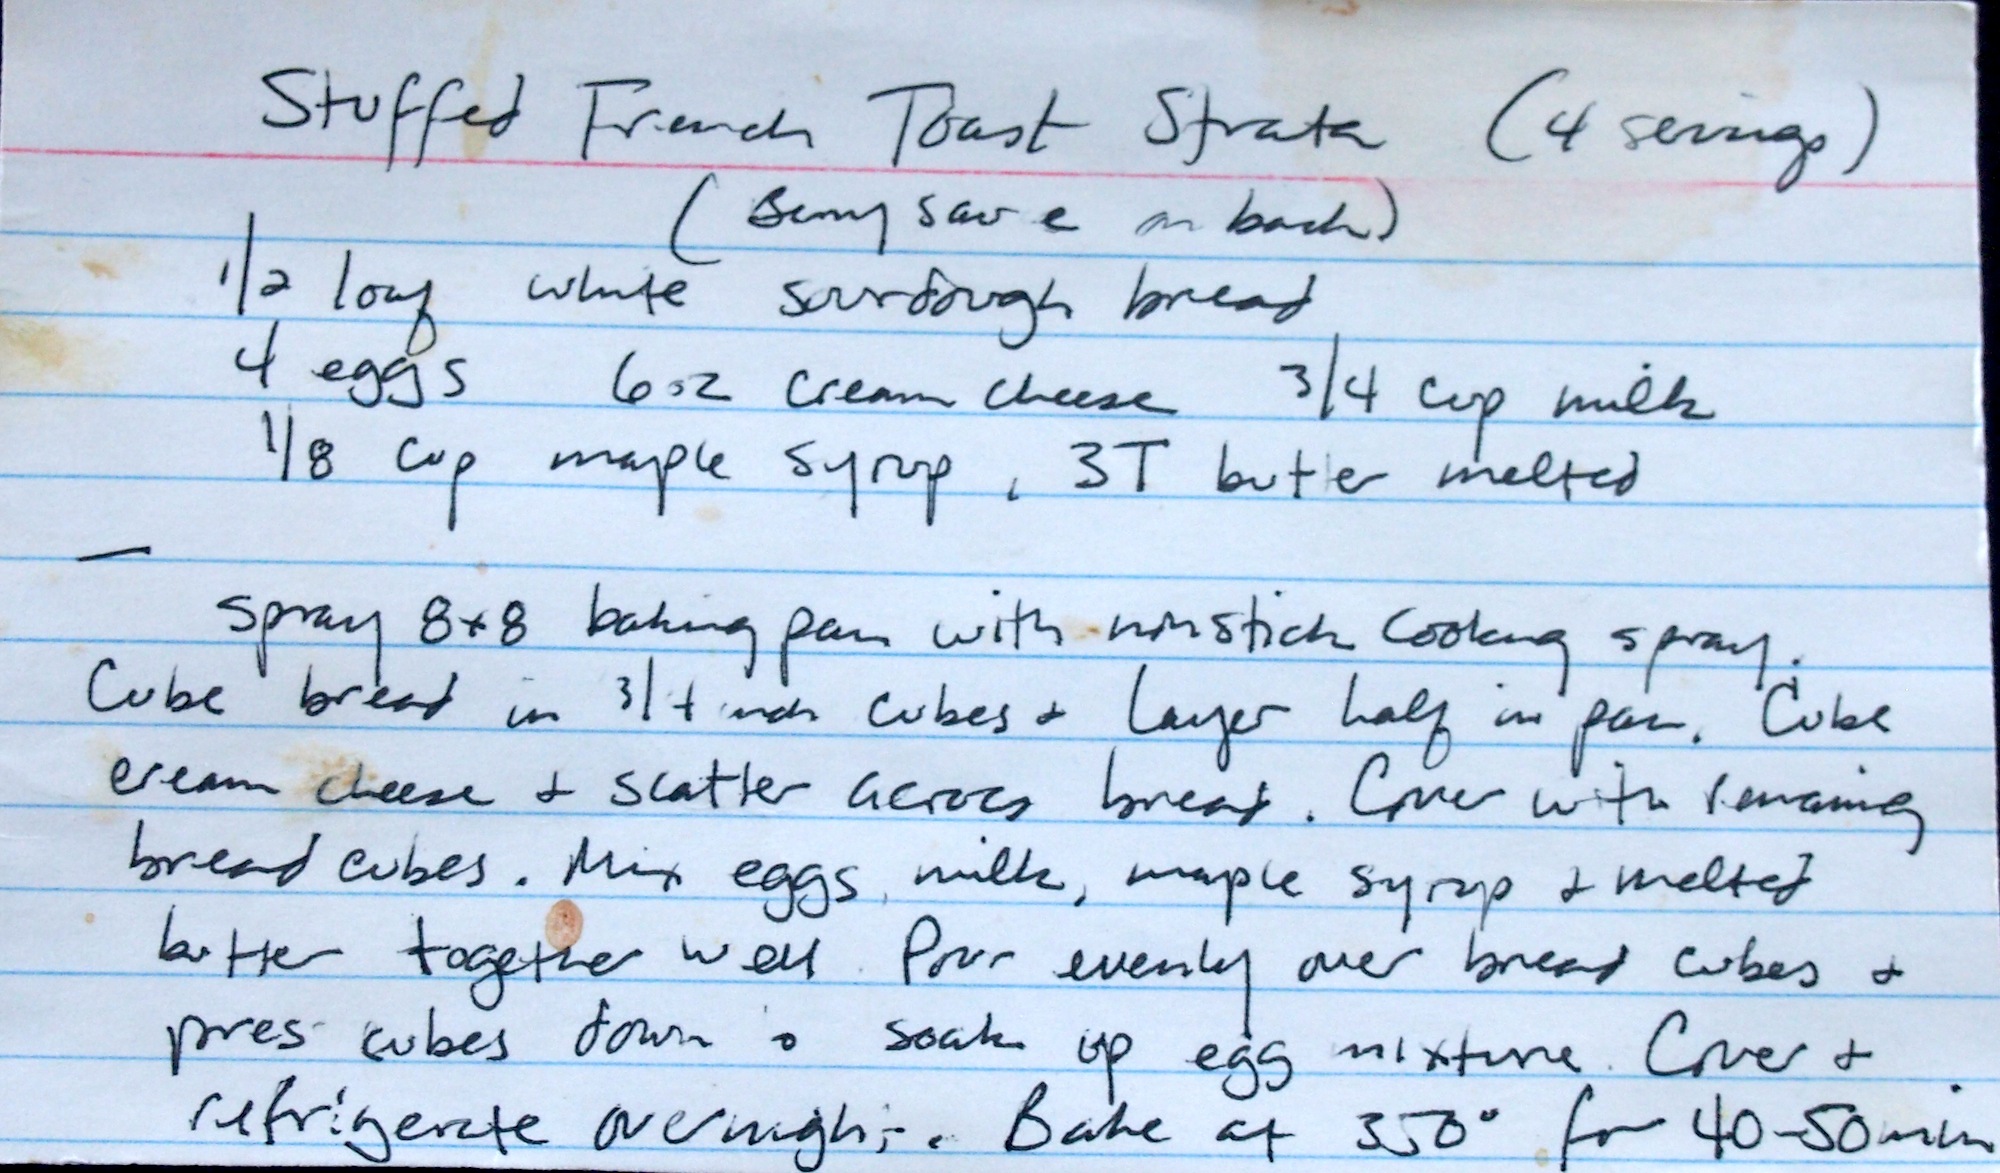 Stuffed French Toast Strata (4 servings)
(Berry sauce on back)
1/2 loaf white sourdough bread
4 eggs 6oz cream cheese 3/4 cup milk
1/8 cup maple syrup, 3T butter melted
—
spray 8x8 baking pan with nonstick cooking spray.
Cube bread in 3/4 inch cubes + layer half in pan. Cube
cream cheese + scatter across bread. Cover with remaining
bread cubes. Mix eggs, milk, maple syrup + melted
butter together well. Pour evenly over bread cubes +
press cubes down to soak up egg mixture. Cover +
refrigerate overnight. Bake at 350° for 40-50 min